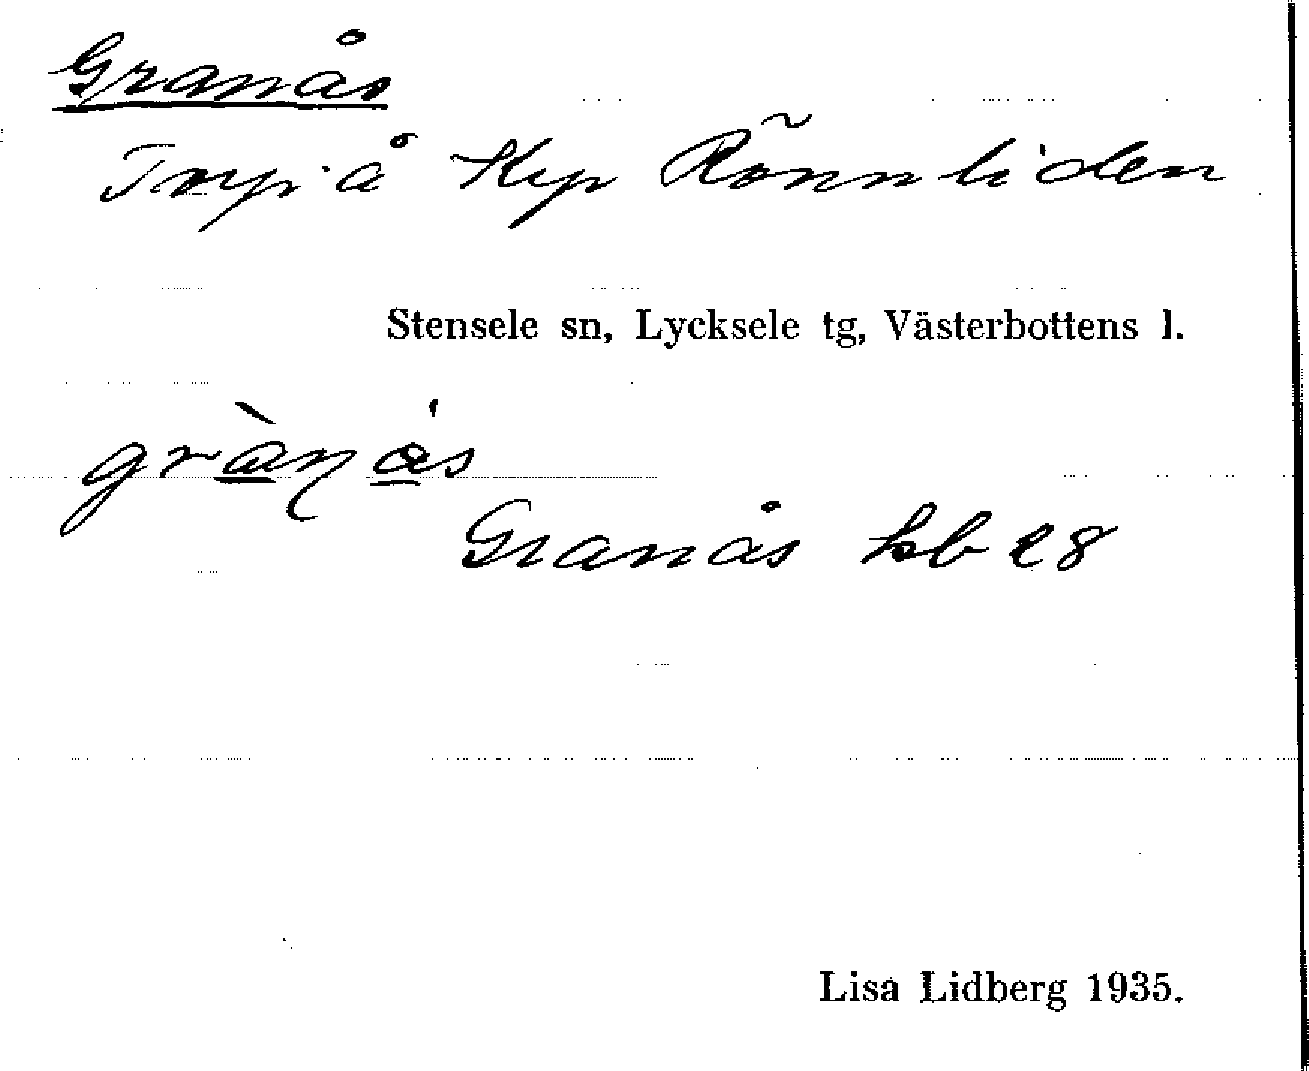 Granås
Torp å Kp Rönnliden
Stensele sn, Lycksele tg, Västerbottens l.
gràn ás
Granås kb 28
Lisa Lidberg 1935.